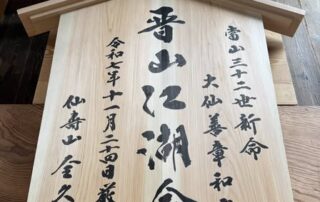 當山三十二世新命
大仙善章和
晋山江湖会
令和七年十一月二十四日厳
仙寿山 全久